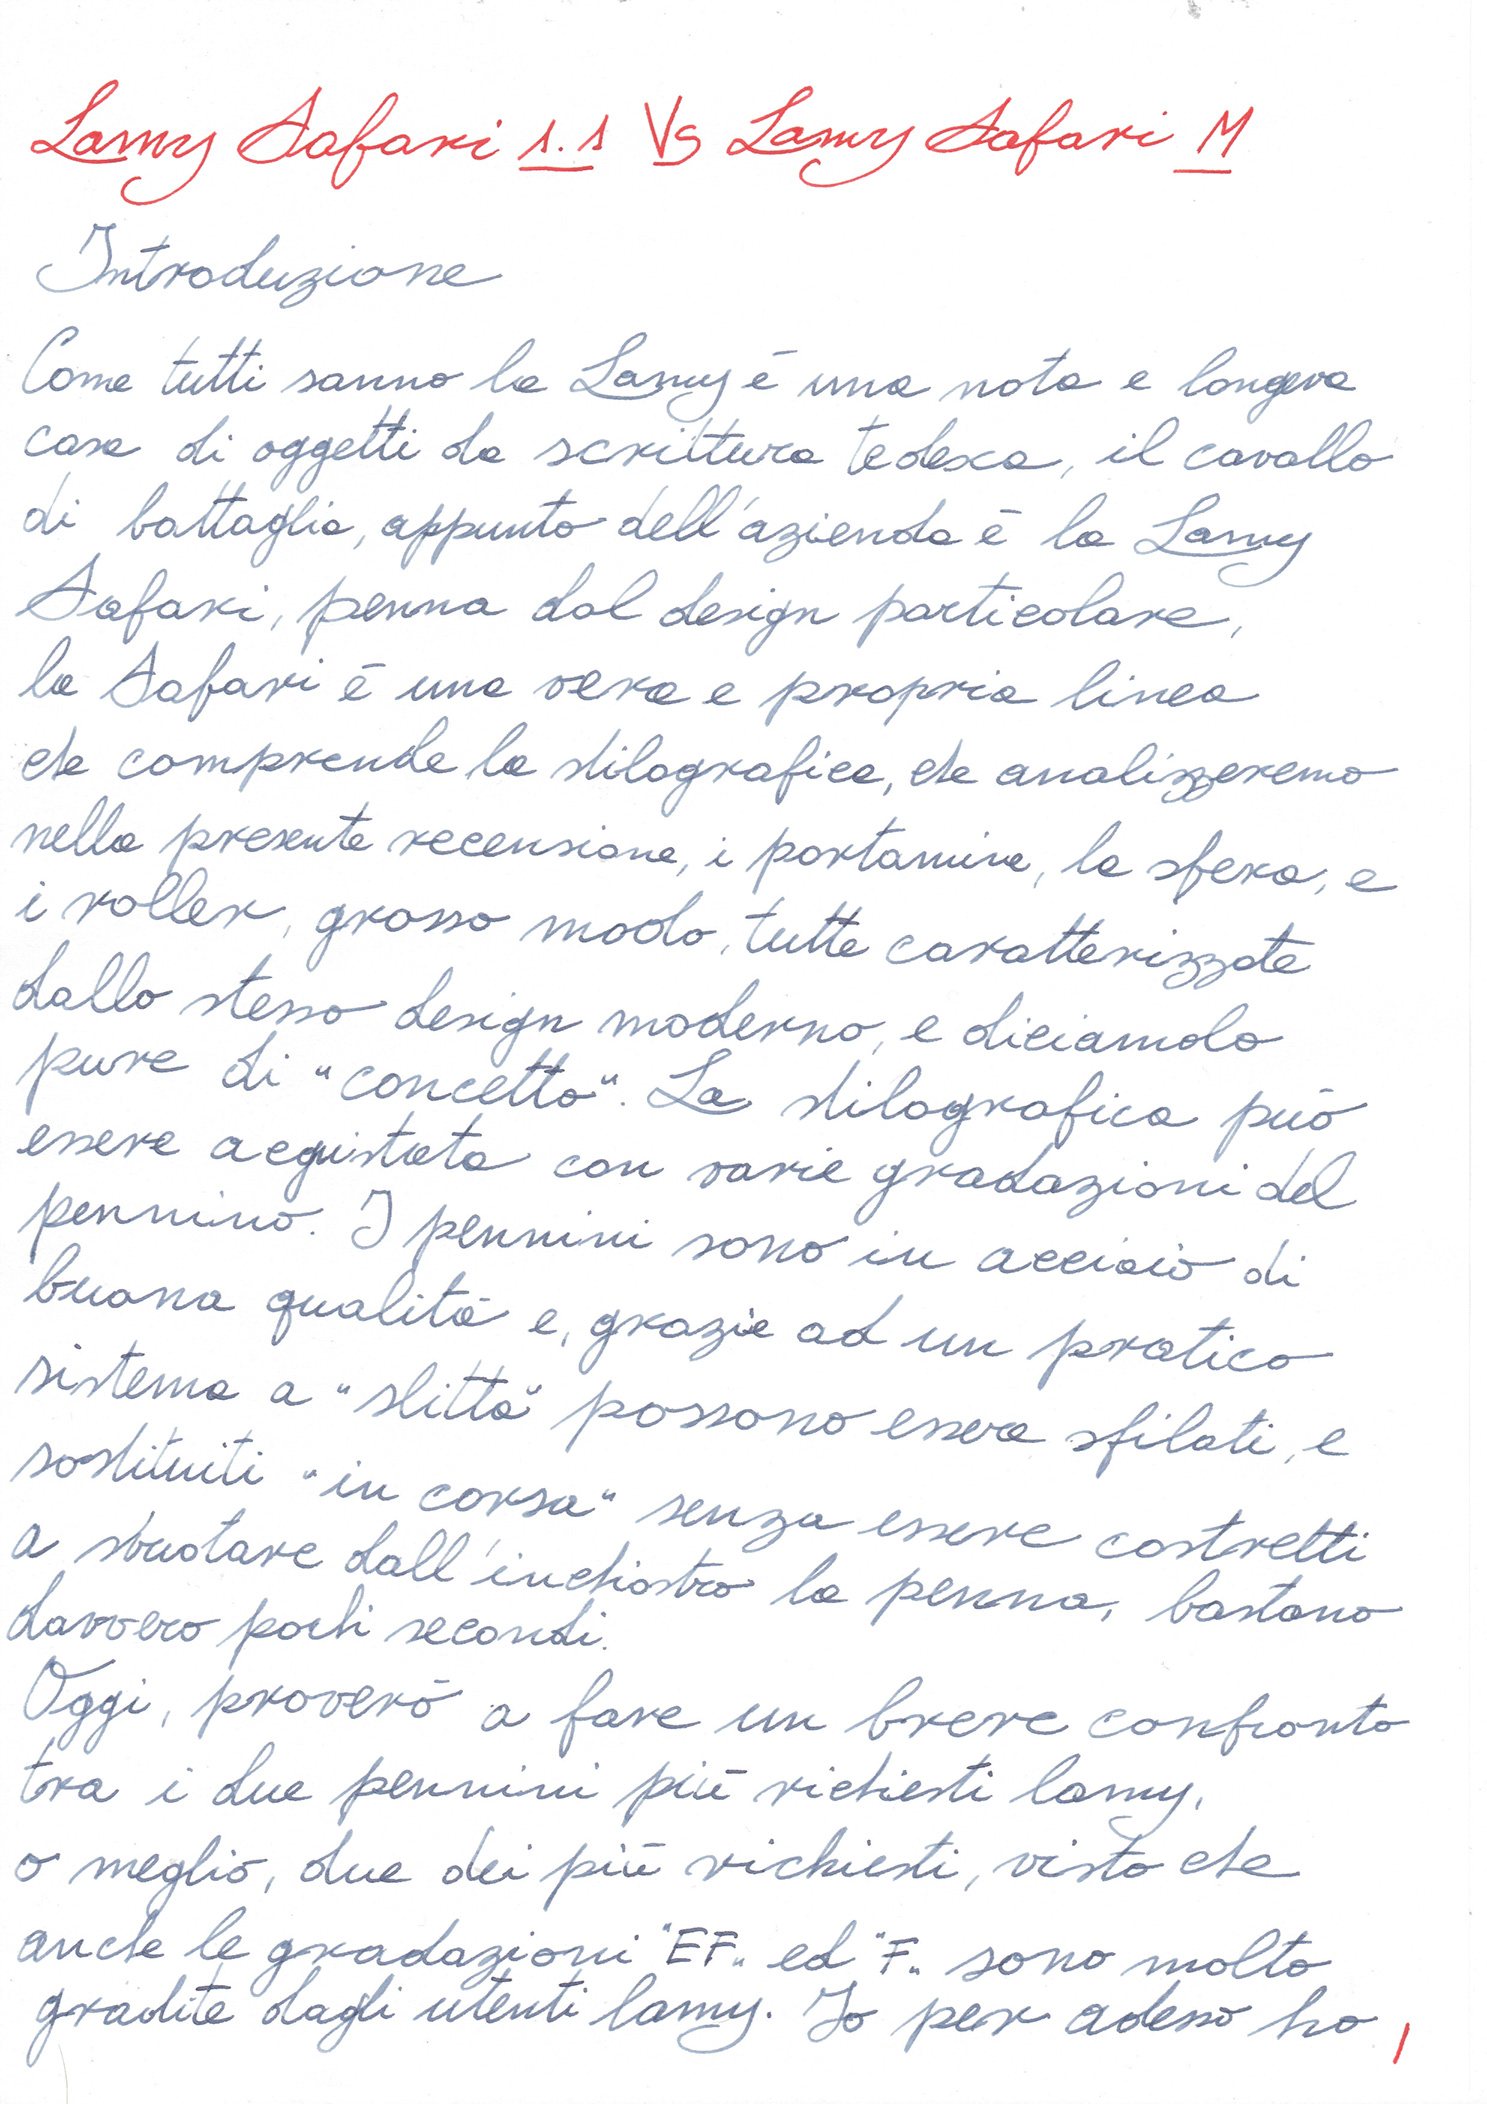 Lamy Safari 1.1 Vs Lamy Safari M
Introduzione
Come tutti sanno la Lamy è una nota e longeva
casa di oggetti da scrittura tedesca, il cavallo
di battaglia, appunto dell'azienda è la Lamy
Safari, penna dal design particolare,
la Safari è una vera e propria linea
che comprende la stilografica, che analizzeremo
nella presente recensione, i portamine, la sfera, e
i roller, grosso modo, tutte caratterizzate
dallo stesso design moderno, e diciamolo
pure di "concetto". La stilografica può
essere acquistata con varie gradazioni del
pennino. I pennini sono in acciaio di
buona qualità e, grazie ad un pratico
sistema a "slitta" possono essere sfilati, e
sostituiti "in corsa" senza essere costretti
a svuotare dall'inchiostro la penna, bastano
davvero pochi secondi.
Oggi, proverò a fare un breve confronto
tra i due pennini più richiesti lamy,
o meglio, due dei più richiesti, visto che
anche le gradazioni "EF" ed "F" sono molto
gradite dagli utenti lamy. Io per adesso ho
1